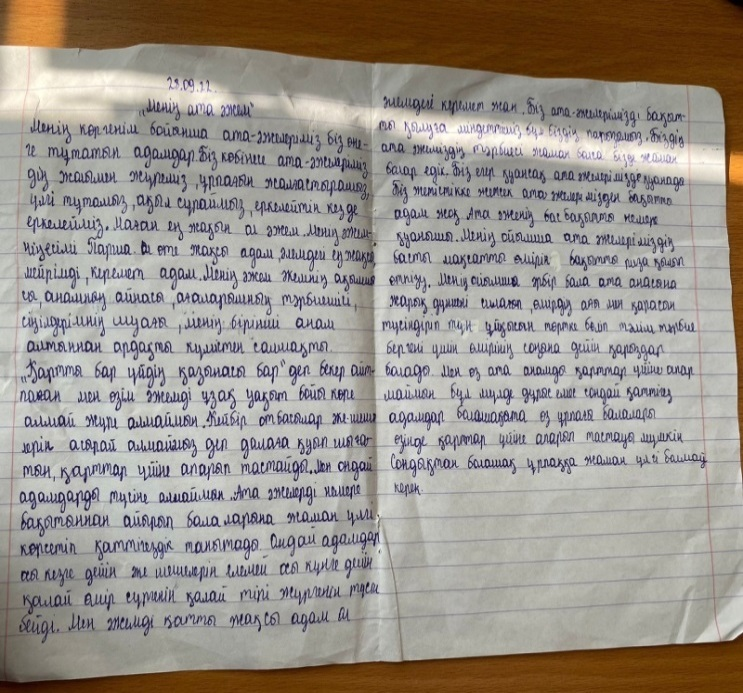 28.09.22.
"Менің ата әжем"
Менің көргенім бойынша ата-әжелеріміз біз өне-
ге тұтатын адамдар. Біз көбінесе ата-әжелеріміз
дің жайымен жүреміз, ұрпағын жалғастырамыз,
үлгі тұтамыз, ақыл сұраймыз, еркелейтін кезде
еркелейміз. Маған ең жақын ол әжем. Менің әжем-
нің есімі Парша. Ол өте жақсы адам, әлемдегі ең жақсы
мейрімді, керемет адам. Менің әжем әкемнің ақылшы
сы, анамның айнасы, ағаларымның тәрбиешісі,
сіңілдерімнің шуағы, менің бірінші анам
алтыннан ардақты күмістен салмақты.
"Қартты бар үйдің қазынасы бар" деп бекер айт-
паған мен өзім әжемді ұзақ уақыт бойы көре
алмай жүре алмаймын. Кейбір отбасылар әке-шеше
лерін асырай алмаймыз деп далаға қуып шыға-
тын, қарттар үйіне апарып тастайды. Мен ондай
адамдарды түсіне алмаймын. Ата әжелерді немере
бақытынан айырып балаларына жаман үлгі
көрсетіп қаттігездік танытады Ондай адамдар
осы кезге дейін әке шешелерін елемей осы күнге дейін
қалай өмір сүргенін қалай тірі жүргенін түсін
бейді. Мен әжемді қатты жақсы адам ол
әлемдегі керемет жан. Біз ата-әжелерімізді бақыт-
ты қылуға міндеттіміз бұл біздің парызымыз. Біздің
ата әжеміздің тәрбиесі жаман болса бізде жаман
болар едік. Біз егер қуансақ ата әжелерімізде қуанады
Біз жетістікке жетсек ата әжелерімізден бақытты
адам жоқ. Ата әженің бас бақытты немере
қуанышы. Менің ойымша ата әжелеріміздің
басты мақсатты өмірін бақытты риза қылып
өткізу. Менің ойымша әрбір бала ата анасына
жарық дүниені сыйлап, өмірдің ағы мен қарасын
түсіндіріп түн ұйқысын төртке бөліп тәлім тәрбие
бергені үшін өмірінің соңына дейін қарыздар
болады. Мен өз ата анамды қарттар үйіне апар
маймын бұл мүлде дұрыс емес сондай қаттігез
адамдар болашақта өз ұрпағы балалары
өзінде қарттар үйіне апарып тастауы мүмкін
Сондықтан болашақ ұрпаққа жаман үлгі болмау
керек.